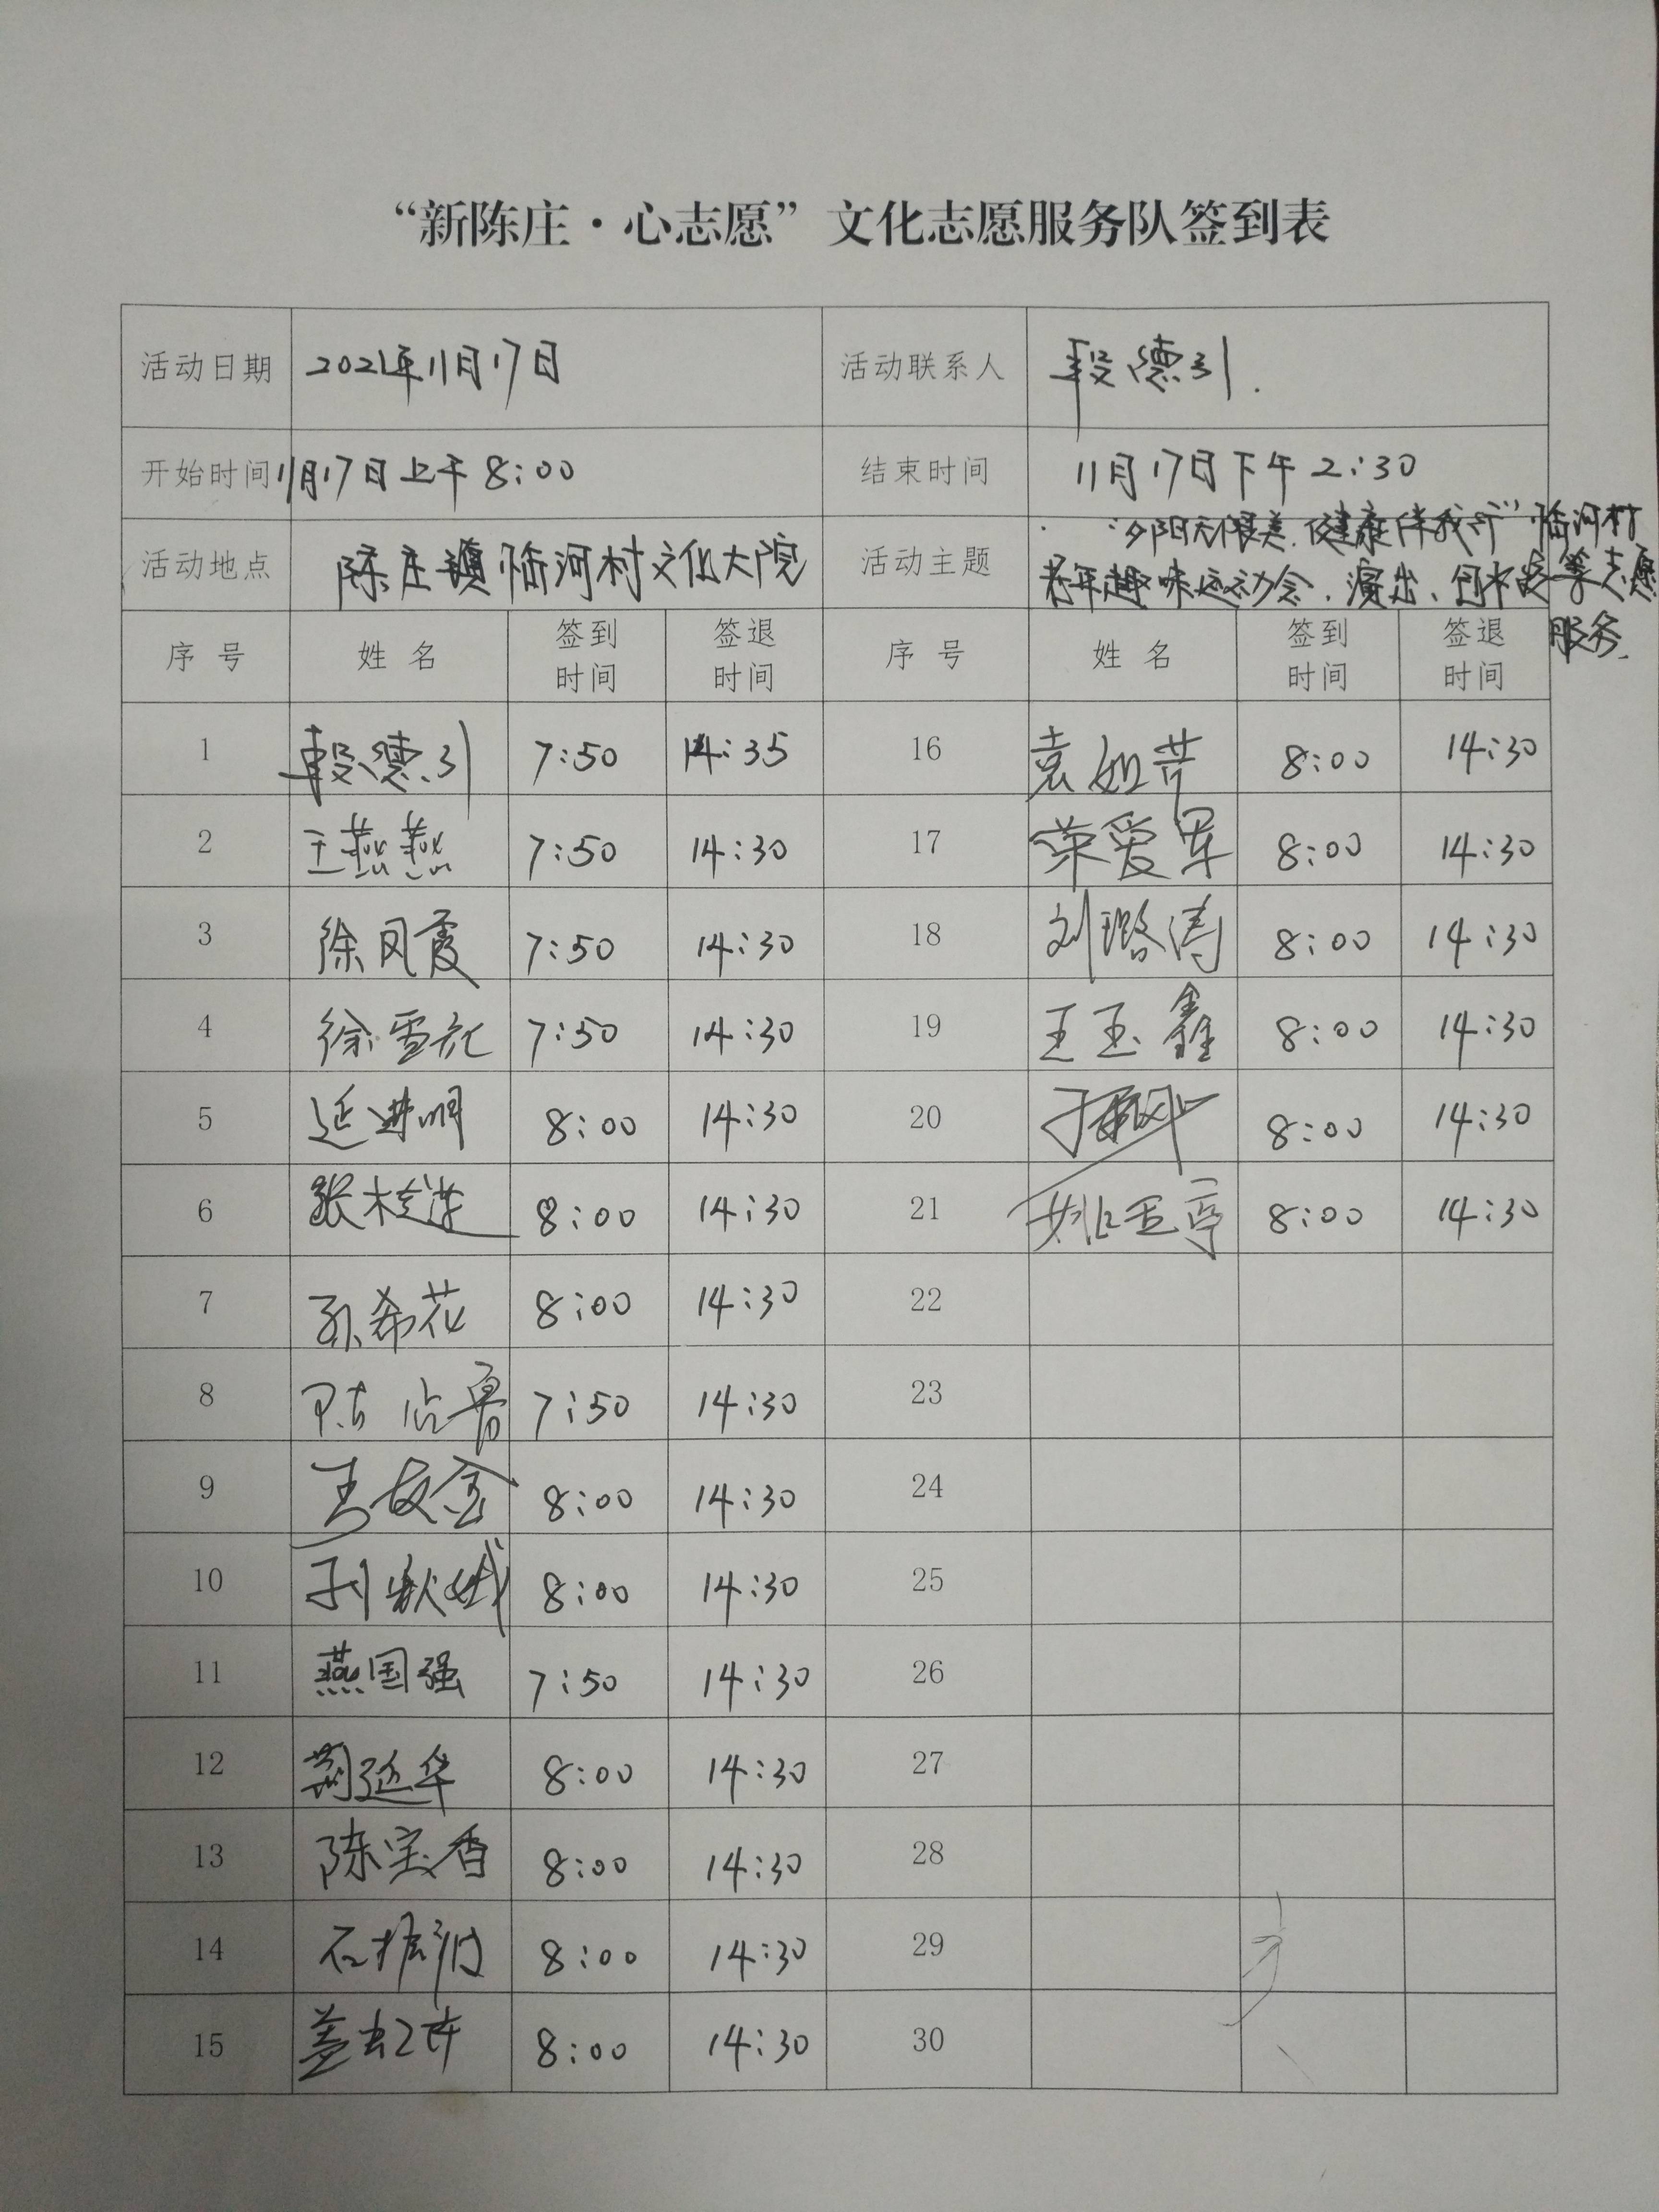 “新陈庄·心志愿”文化志愿服务队签到表
活动日期 2021年11月17日 活动联系人 段德引.
开始时间 11月17日上午8:00 结束时间 11月17日下午2:30
活动地点 陈庄镇临河村文化大院 活动主题 “夕阳无限美.健康伴我行”临河村
老年趣味运动会.演出、包水饺等志愿
服务.
序号 姓名 签到时间 签退时间 序号 姓名 签到时间 签退时间
1 段德引 7:50 14:35 16 袁如芹 8:00 14:30
2 王燕燕 7:50 14:30 17 荣爱军 8:00 14:30
3 徐凤霞 7:50 14:30 18 刘璐涛 8:00 14:30
4 徐雪花 7:50 14:30 19 王玉鑫 8:00 14:30
5 延进明 8:00 14:30 20 8:00 14:30
6 张桂莲 8:00 14:30 21 姚玉亭 8:00 14:30
7 孙希花 8:00 14:30 22
8 陈占鲁 7:50 14:30 23
9 王友金 8:00 14:30 24
10 刘秋娥 8:00 14:30 25
11 燕国强 7:50 14:30 26
12 荆延华 8:00 14:30 27
13 陈宝香 8:00 14:30 28
14 石 8:00 14:30 29
15 盖 8:00 14:30 30